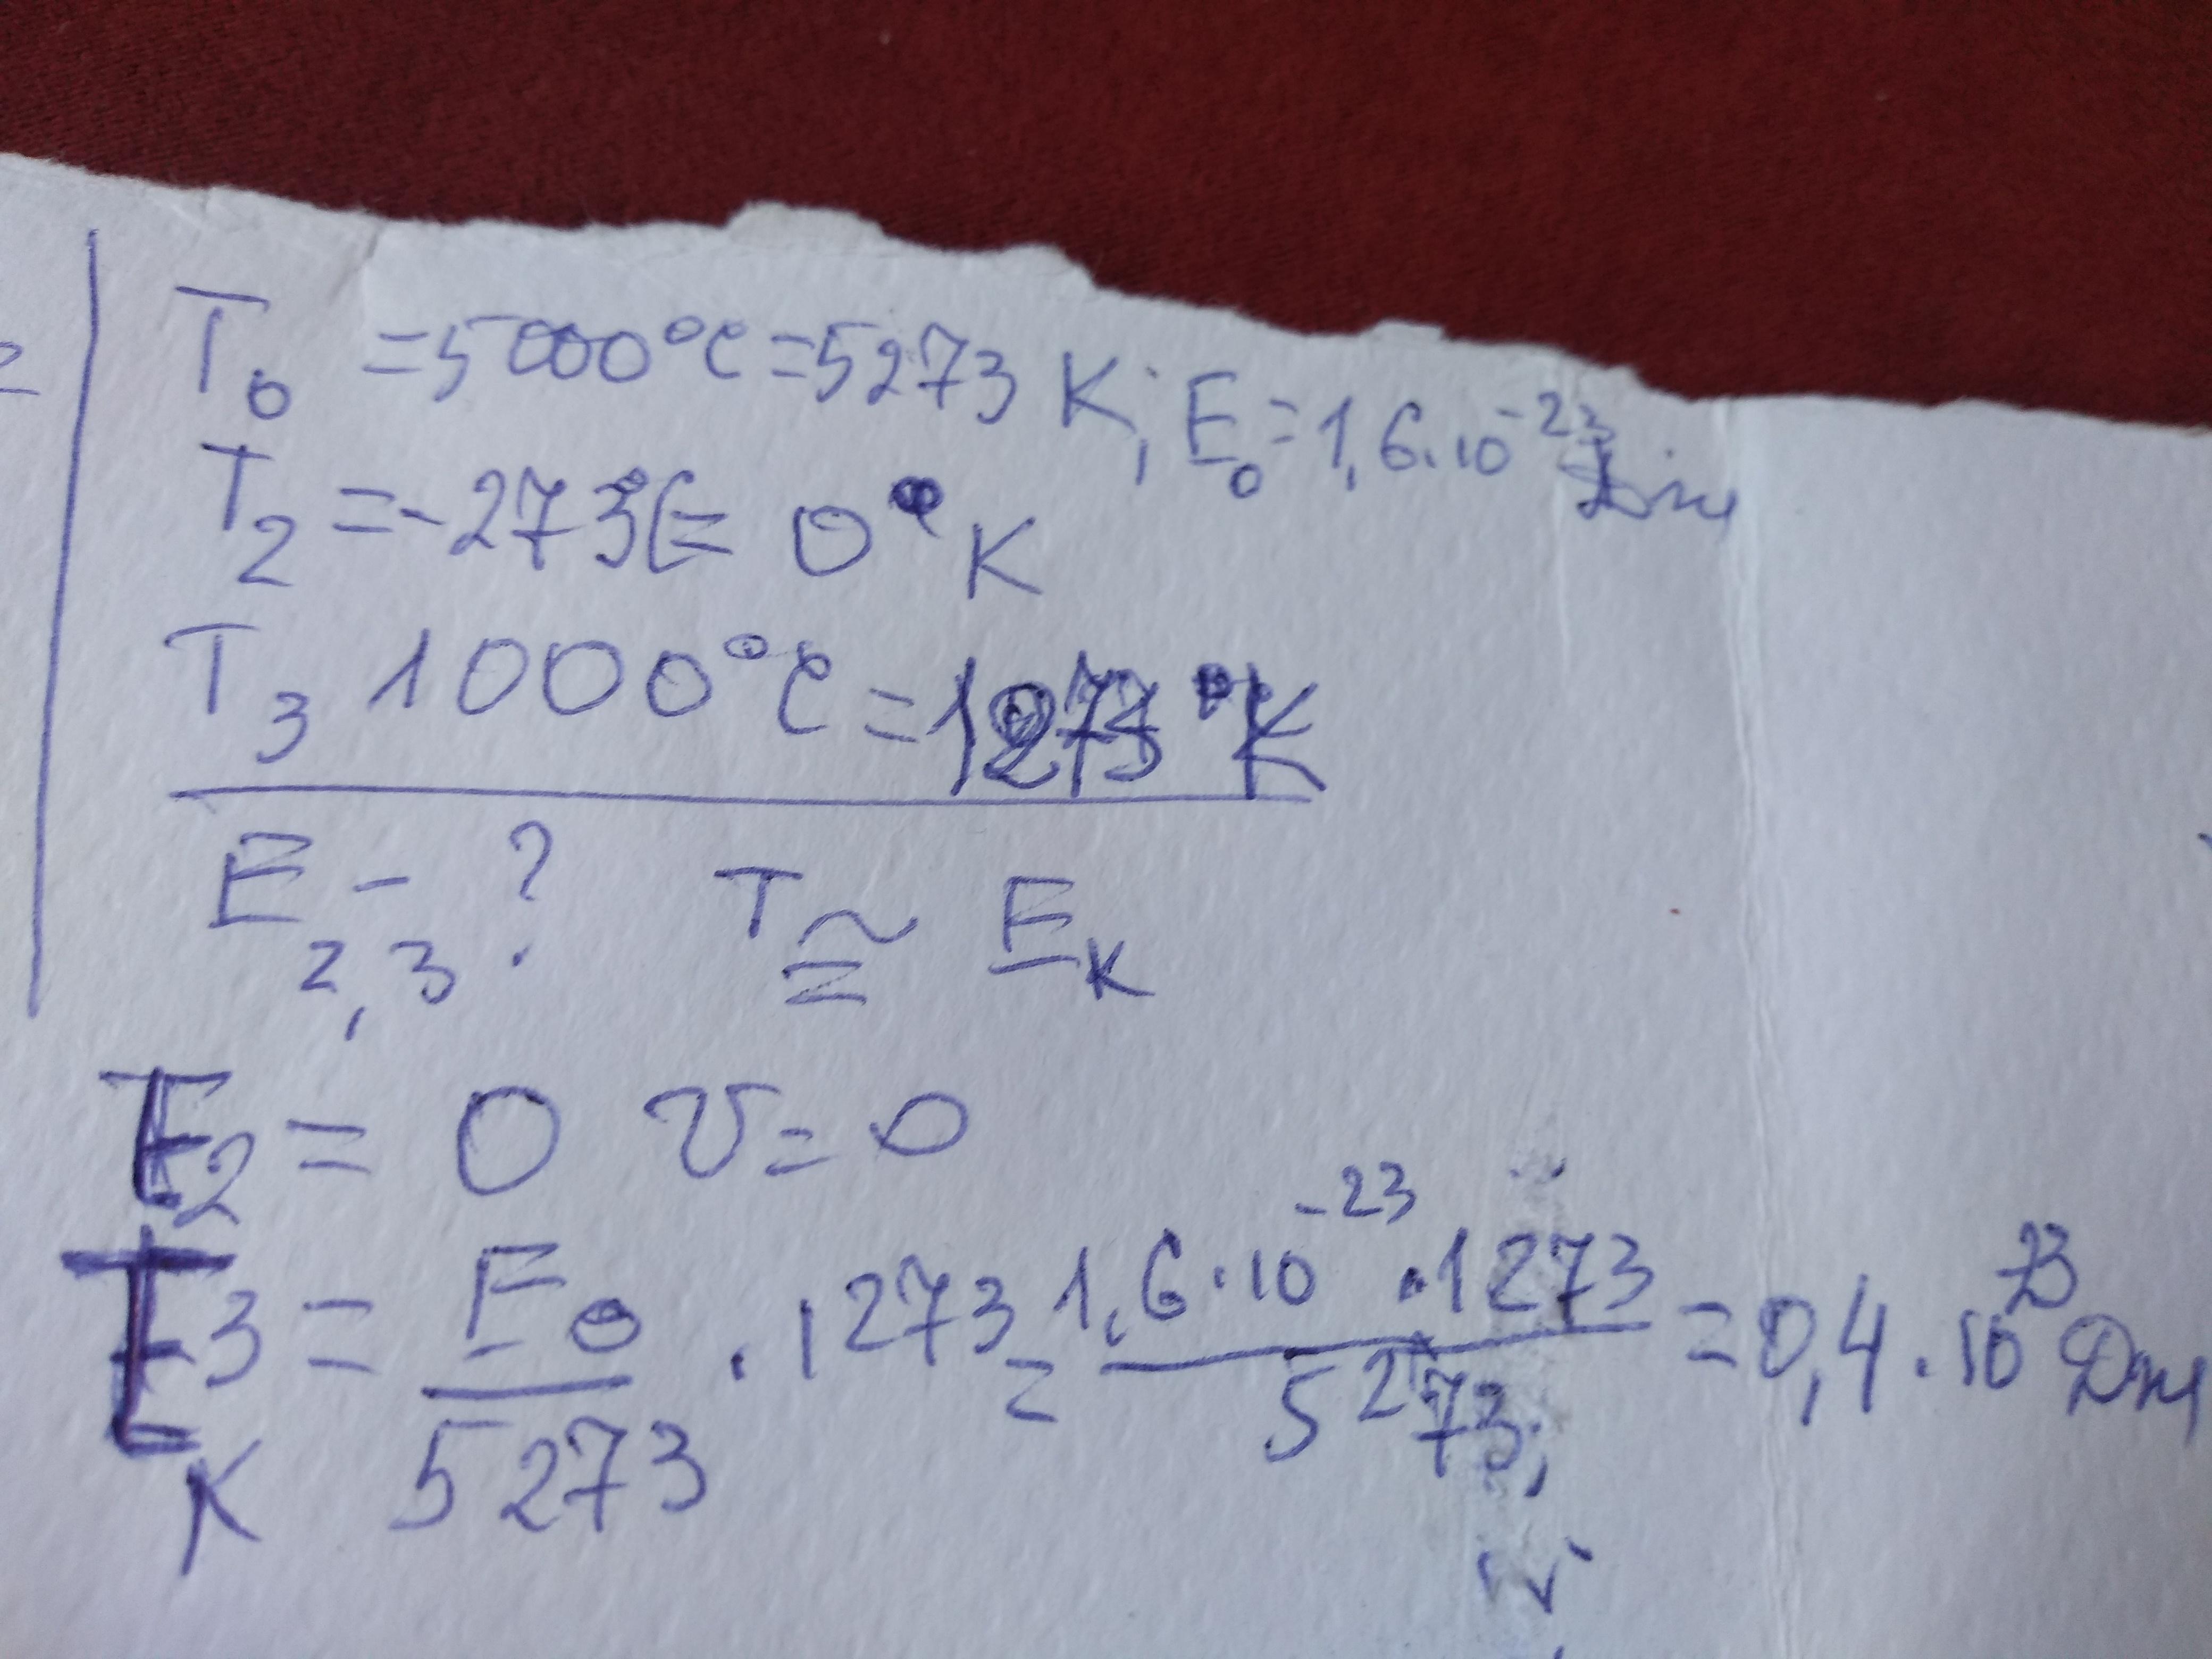 T₀ = 5000°C = 5273 K; E₀ = 1,6·10⁻²³ Дж
T₂ = -273°C = 0° K
T₃ 1000°C = 1273 °K
E₂,₃ - ? T ≅ E_K
E₂ = 0 v = 0
E₃ K = E₀ / 5273 · 1273 = 1,6·10⁻²³ · 1273 / 5273 = 0,4·10⁻²³ Дж